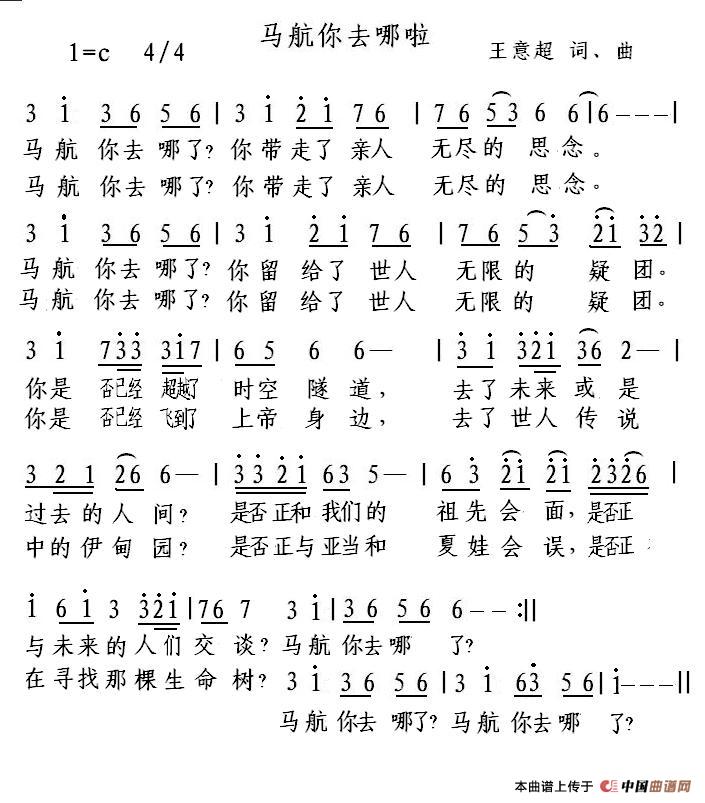 马航你去哪啦
1=c 4/4 王意超 词、曲
3 i 3 6 5 6 | 3 i 2 i 7 6 | 7 6 5 3 6 6 | 6 - - - |
马航 你去 哪了? 你带走了 亲人 无尽的 思念。
马航 你去 哪了? 你带走了 亲人 无尽的 思念。
3 i 3 6 5 6 | 3 i 2 i 7 6 | 7 6 5 3 2 i 3 2 |
马航 你去 哪了? 你留 给了 世人 无限的 疑团。
马航 你去 哪了? 你留 给了 世人 无限的 疑团。
3 i 7 3 3 3 i 7 | 6 5 6 6 — | 3 i 3 2 i 3 6 2 — |
你是 否已经 超越了 时空 隧道, 去了未来或是
你是 否已经 飞到了 上帝 身边, 去了世人传说
3 2 1 2 6 6 — | 3 3 2 i 6 3 5 — | 6 3 2 i 2 i 2 3 2 6 |
过去的人 间? 是否正和 我们的 祖先会 面,是否正
中的伊甸 园? 是否正与 亚当和 夏娃会 误,是否正
i 6 i 3 3 2 i | 7 6 7 3 i | 3 6 5 6 6 - - :||
与未来的人们交 谈? 马航你去哪 了?
在寻找那棵生命 树? 3 i 3 6 5 6 | 3 i 6 3 5 6 | i - - - ||
马航你去 哪了? 马航你去哪 了?
本曲谱上传于 中国曲谱网